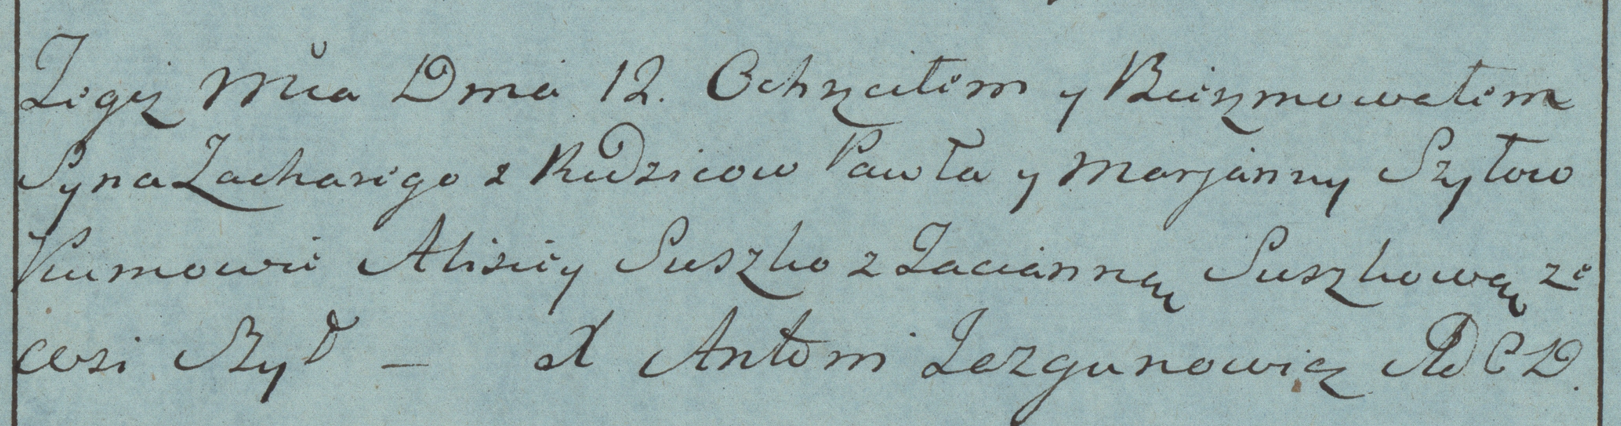 Tegoż Mca Dnia 12. Ochrzciłem y Bierzmowałem
Syna Zacharego z Rodzicow Pawła y Marjanny Szyłow
Kumowie Alisiey Suszko z Tacianną Suszkową ze
wsi Szył — X Antoni Jazgunowicz P D C D.